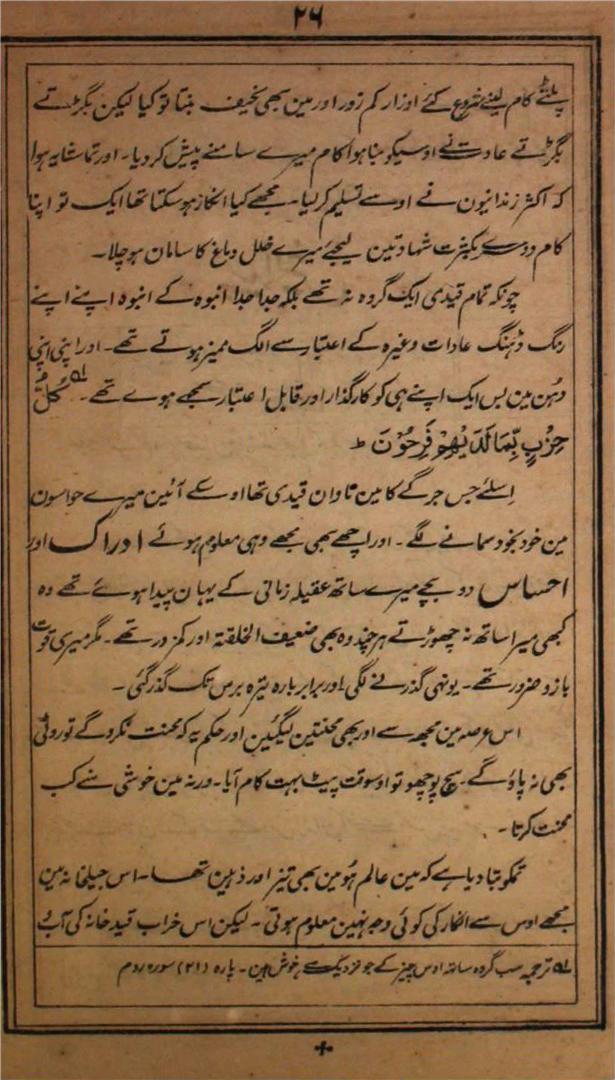 ۲۶
پلٹے کام لینے شروع کئے اوزار کم زور اور مین بھی نحیف بنتا تو کیا لیکن بگڑتے
بگڑتے عادت نے اوسیکو بنا ہوا کام میرے سامنے پیش کردیا۔ اور تماشا یہ ہوا
کہ اکثر زندانیون نے اوسے تسلیم کرلیا۔ مجھے کیا انکار ہوسکتا تھا ایک تو اپنا
کام دوسرے بکثرت شہادتین لیجئے میرے خلل دماغ کا سامان ہو چلا۔
چونکہ تمام قیدی ایک گروہ نہ تھے بلکہ جدا جدا انبوہ کے انبوہ اپنے اپنے
رنگ ڈہنگ عادات وغیرہ کے اعتبار سے الگ ممیز ہوتے تھے۔ اور اپنی اپنی
دہُن مین بس ایک اپنے ہی کو کارگذار اور قابل اعتبار سمجھے ہوے تھے۔ لہ کُلُّ
حِزْبٍ بِّمَا لَدَیْهِمْ فَرِحُوْنَ ط
اِسلئے جس جرگے کا مین تاوان قیدی تھا اوسکے آئین میرے حواسون
مین خود بخود سمانے لگے۔ اور اچھے بھی مجھے وہی معلوم ہوئے ادراک اور
احساس دو بچے میرے ساتھ عقیلہ زماتی کے یہان پیدا ہوئے تھے وہ
کبھی میرا ساتھ نہ چھوڑتے ہر چند وہ بھی ضعیف الخلقتہ اور کمزور تھے۔ مگر میری قوت
بازو ضرور تھے۔ یونہی گذرنے لگی اور برابر بارہ تیرہ برس تک گذر گئی۔
اس عرصہ مین مجھ سے اور بھی محنتین لیگئین اور حکم یہ کہ محنت نکرو گے تو روٹی
بھی نہ پاؤ گے۔ سچ پوچھو تو اوسوقت پیٹ بہت کام آیا۔ ورنہ مین خوشی سے کب
محنت کرتا۔
تمکو بتا دیا ہے کہ مین عالم ہُو مین بھی تیز اور ذہین تھا۔ اس جیلخانہ مین
مجھے اوس سے انکار کی کوئی وجہ نہین معلوم ہوتی۔ لیکن اس خراب قید خانہ کی آب و
لہ ترجمہ سب گروہ ساتھ اوس چیز کے جو نزدیک ہے خوش ہین۔ پارہ (۲۱) سورہ روم